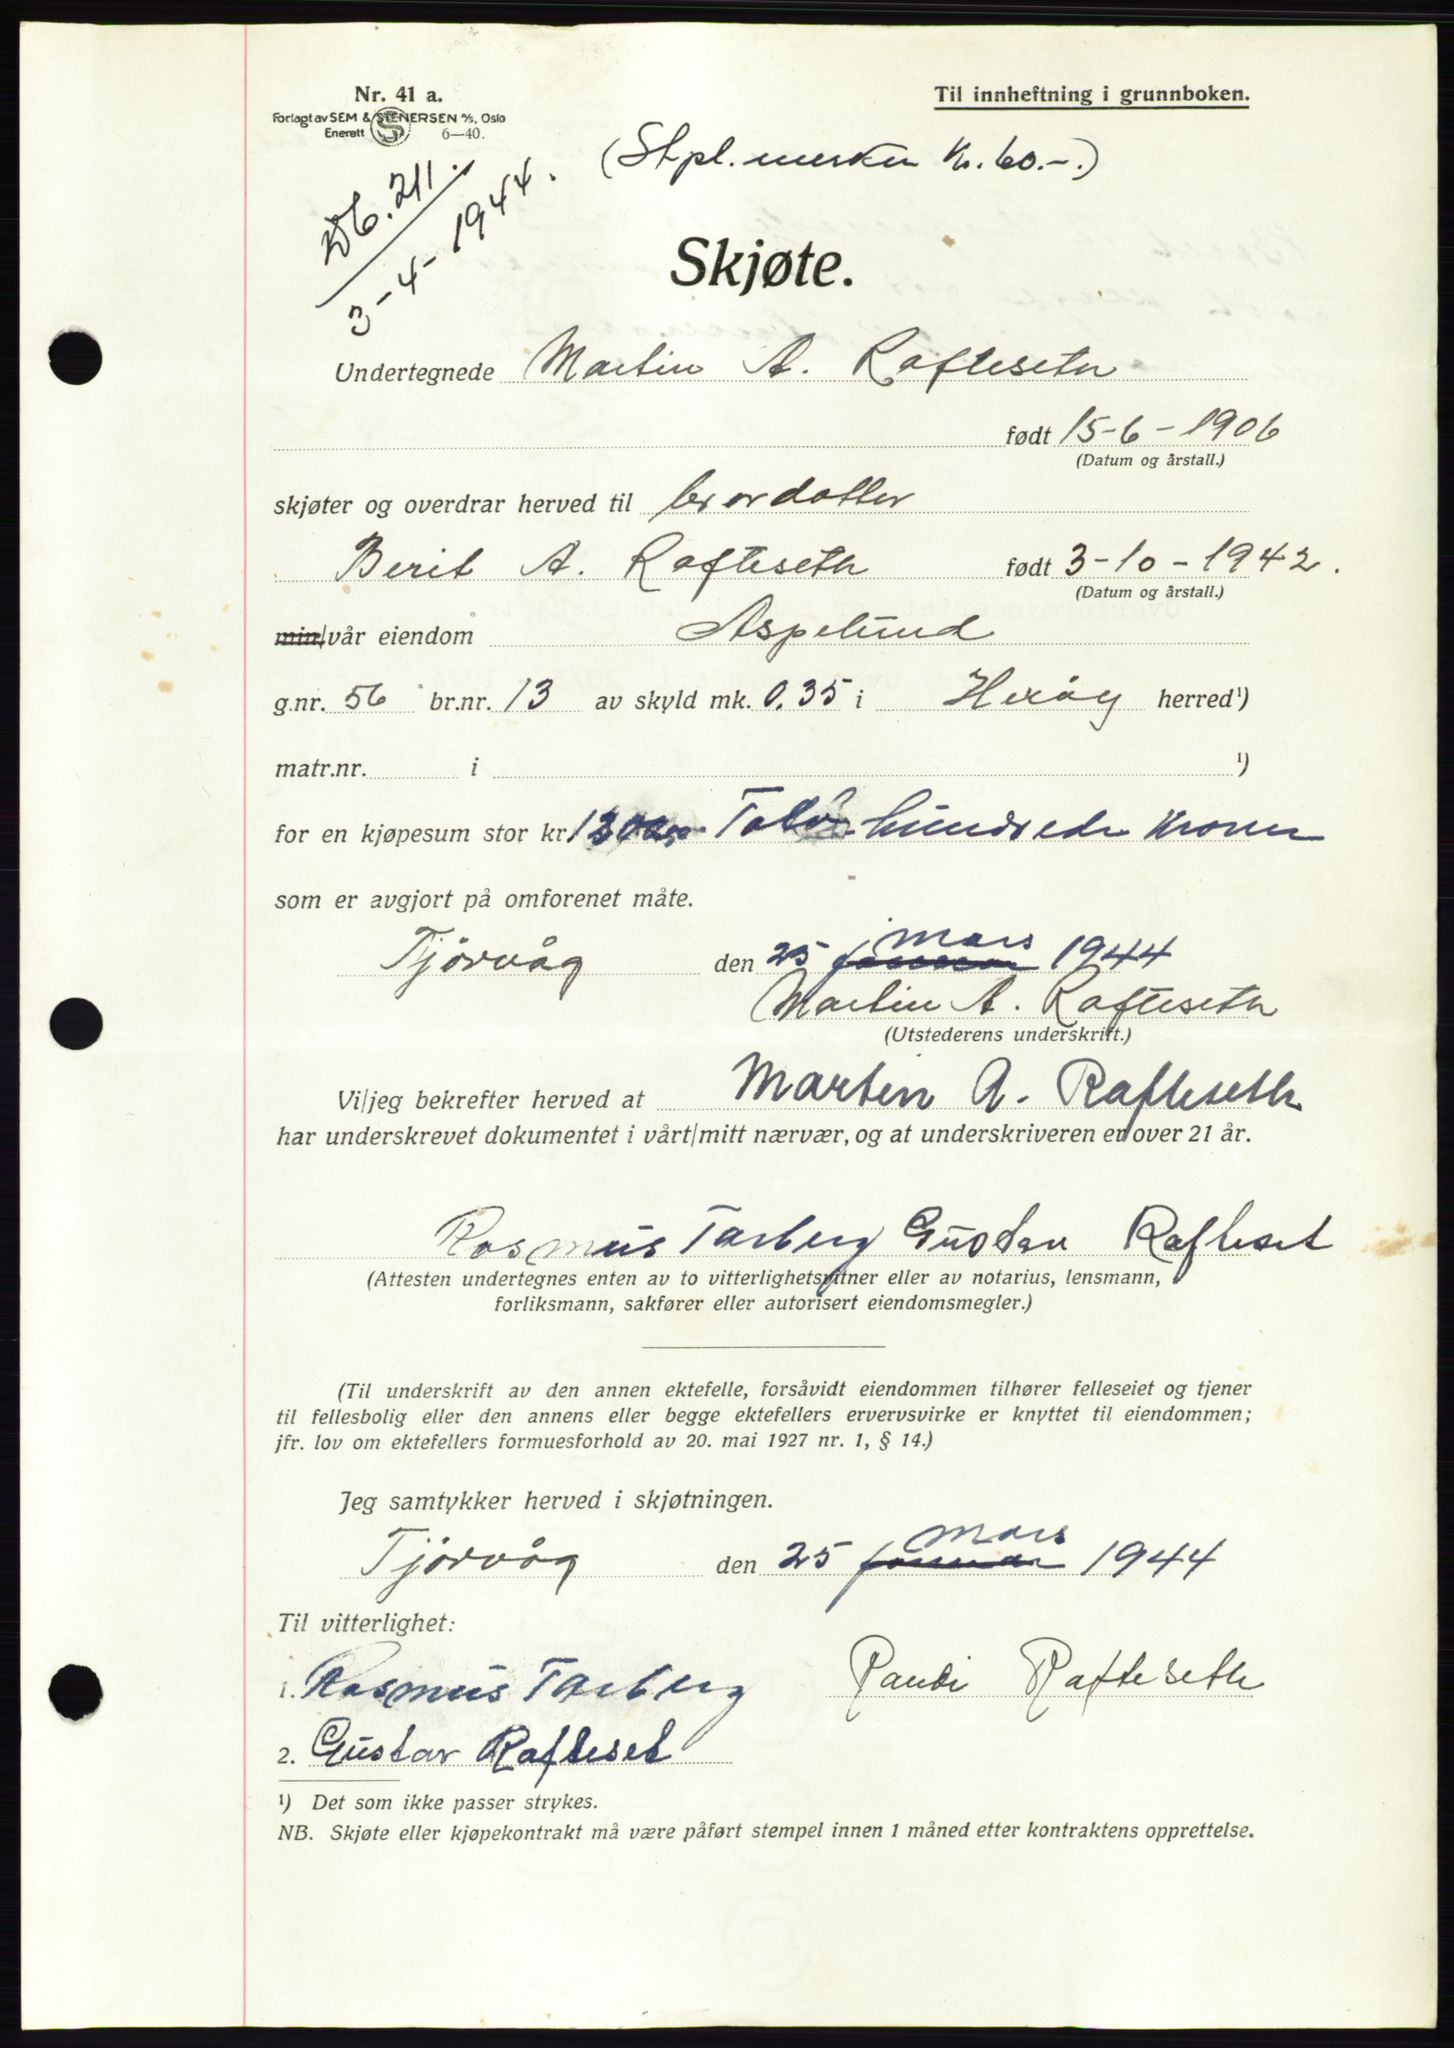 Nr. 41 a.
Forlagt av SEM & STENERSEN A/S, Oslo
Enerett 6—40.
Til innheftning i grunnboken.
(Stpl. merker Kr. 60.-.)
Db. 211.
3-4-1944.
Skjøte.
Undertegnede Martin A. Rafteseth
født 15-6-1906
(Datum og årstall.)
skjøter og overdrar herved til brordatter
Berit A. Rafteseth født 3-10-1942.
(Datum og årstall.)
min/vår eiendom Aspelund
g.nr. 56 br.nr. 13 av skyld mk. 0.35 i Herøy herred¹)
matr.nr. i ¹)
for en kjøpesum stor kr. hundrede Kroner
som er avgjort på omforenet måte.
Tjørvåg den 25 januar mars 1944
Martin A. Rafteseth
(Utstederens underskrift.)
Vi/jeg bekrefter herved at Martin A. Rafteseth
har underskrevet dokumentet i vårt/mitt nærvær, og at underskriveren er over 21 år.
Rasmus Tarberg Gustav Rafteset
(Attesten undertegnes enten av to vitterlighetsvitner eller av notarius, lensmann,
forliksmann, sakfører eller autorisert eiendomsmegler.)
(Til underskrift av den annen ektefelle, forsåvidt eiendommen tilhører felleseiet og tjener
til fellesbolig eller den annens eller begge ektefellers ervervsvirke er knyttet til eiendommen;
jfr. lov om ektefellers formuesforhold av 20. mai 1927 nr. 1, § 14.)
Jeg samtykker herved i skjøtningen.
Tjørvåg den 25 januar mars 1944
Til vitterlighet:
1. Rasmus Tarberg Randi Rafteseth
2. Gustav Rafteset
¹) Det som ikke passer strykes.
NB. Skjøte eller kjøpekontrakt må være påført stempel innen 1 måned etter kontraktens opprettelse.